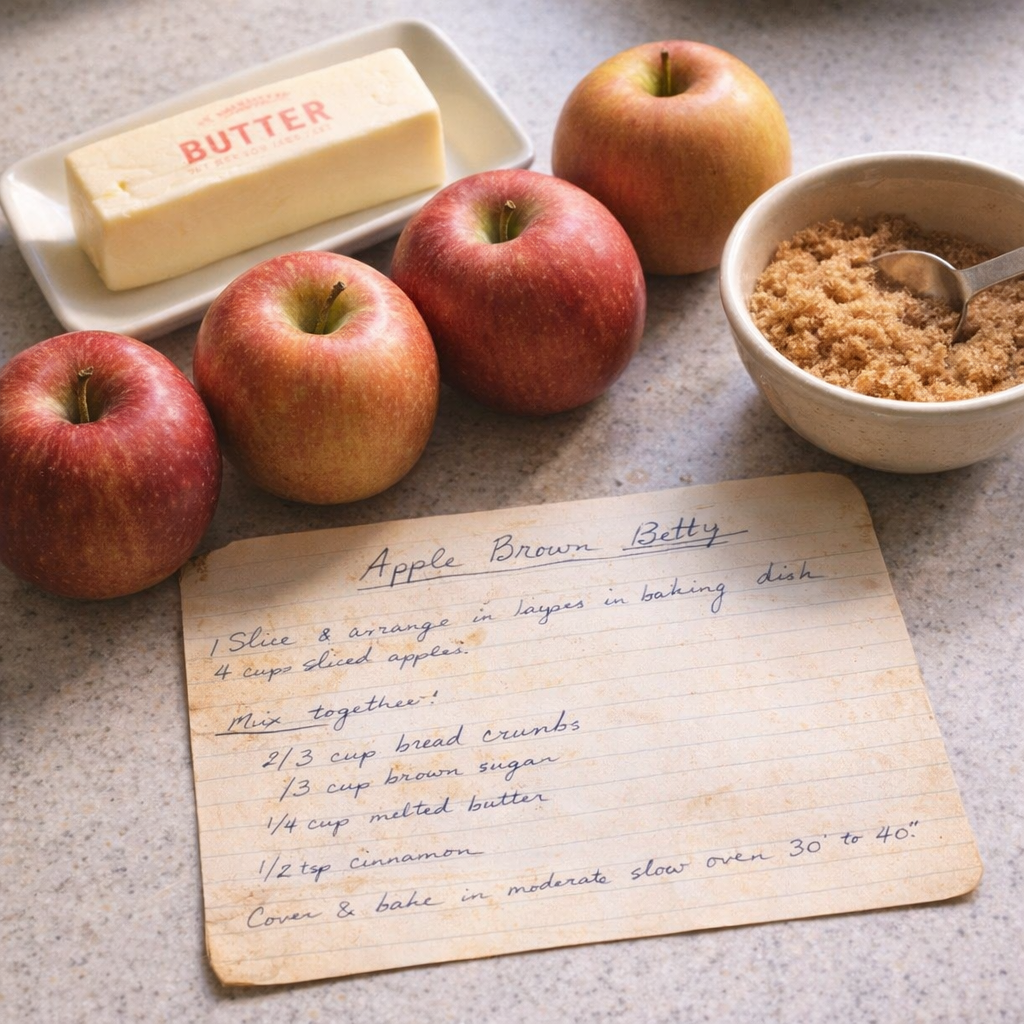 BUTTER
Apple Brown Betty
1 Slice & arrange in laypes in baking dish
4 cups sliced apples.
Mix together:
2/3 cup bread crumbs
1/3 cup brown sugar
1/4 cup melted butter
1/2 tsp cinnamon
Cover & bake in moderate slow oven 30' to 40."